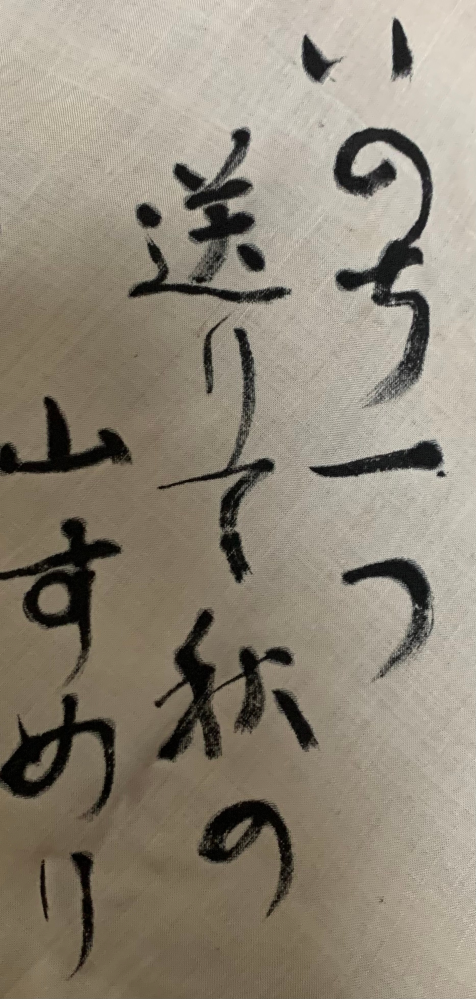 いのち一つ
送りて秋の
山すめり